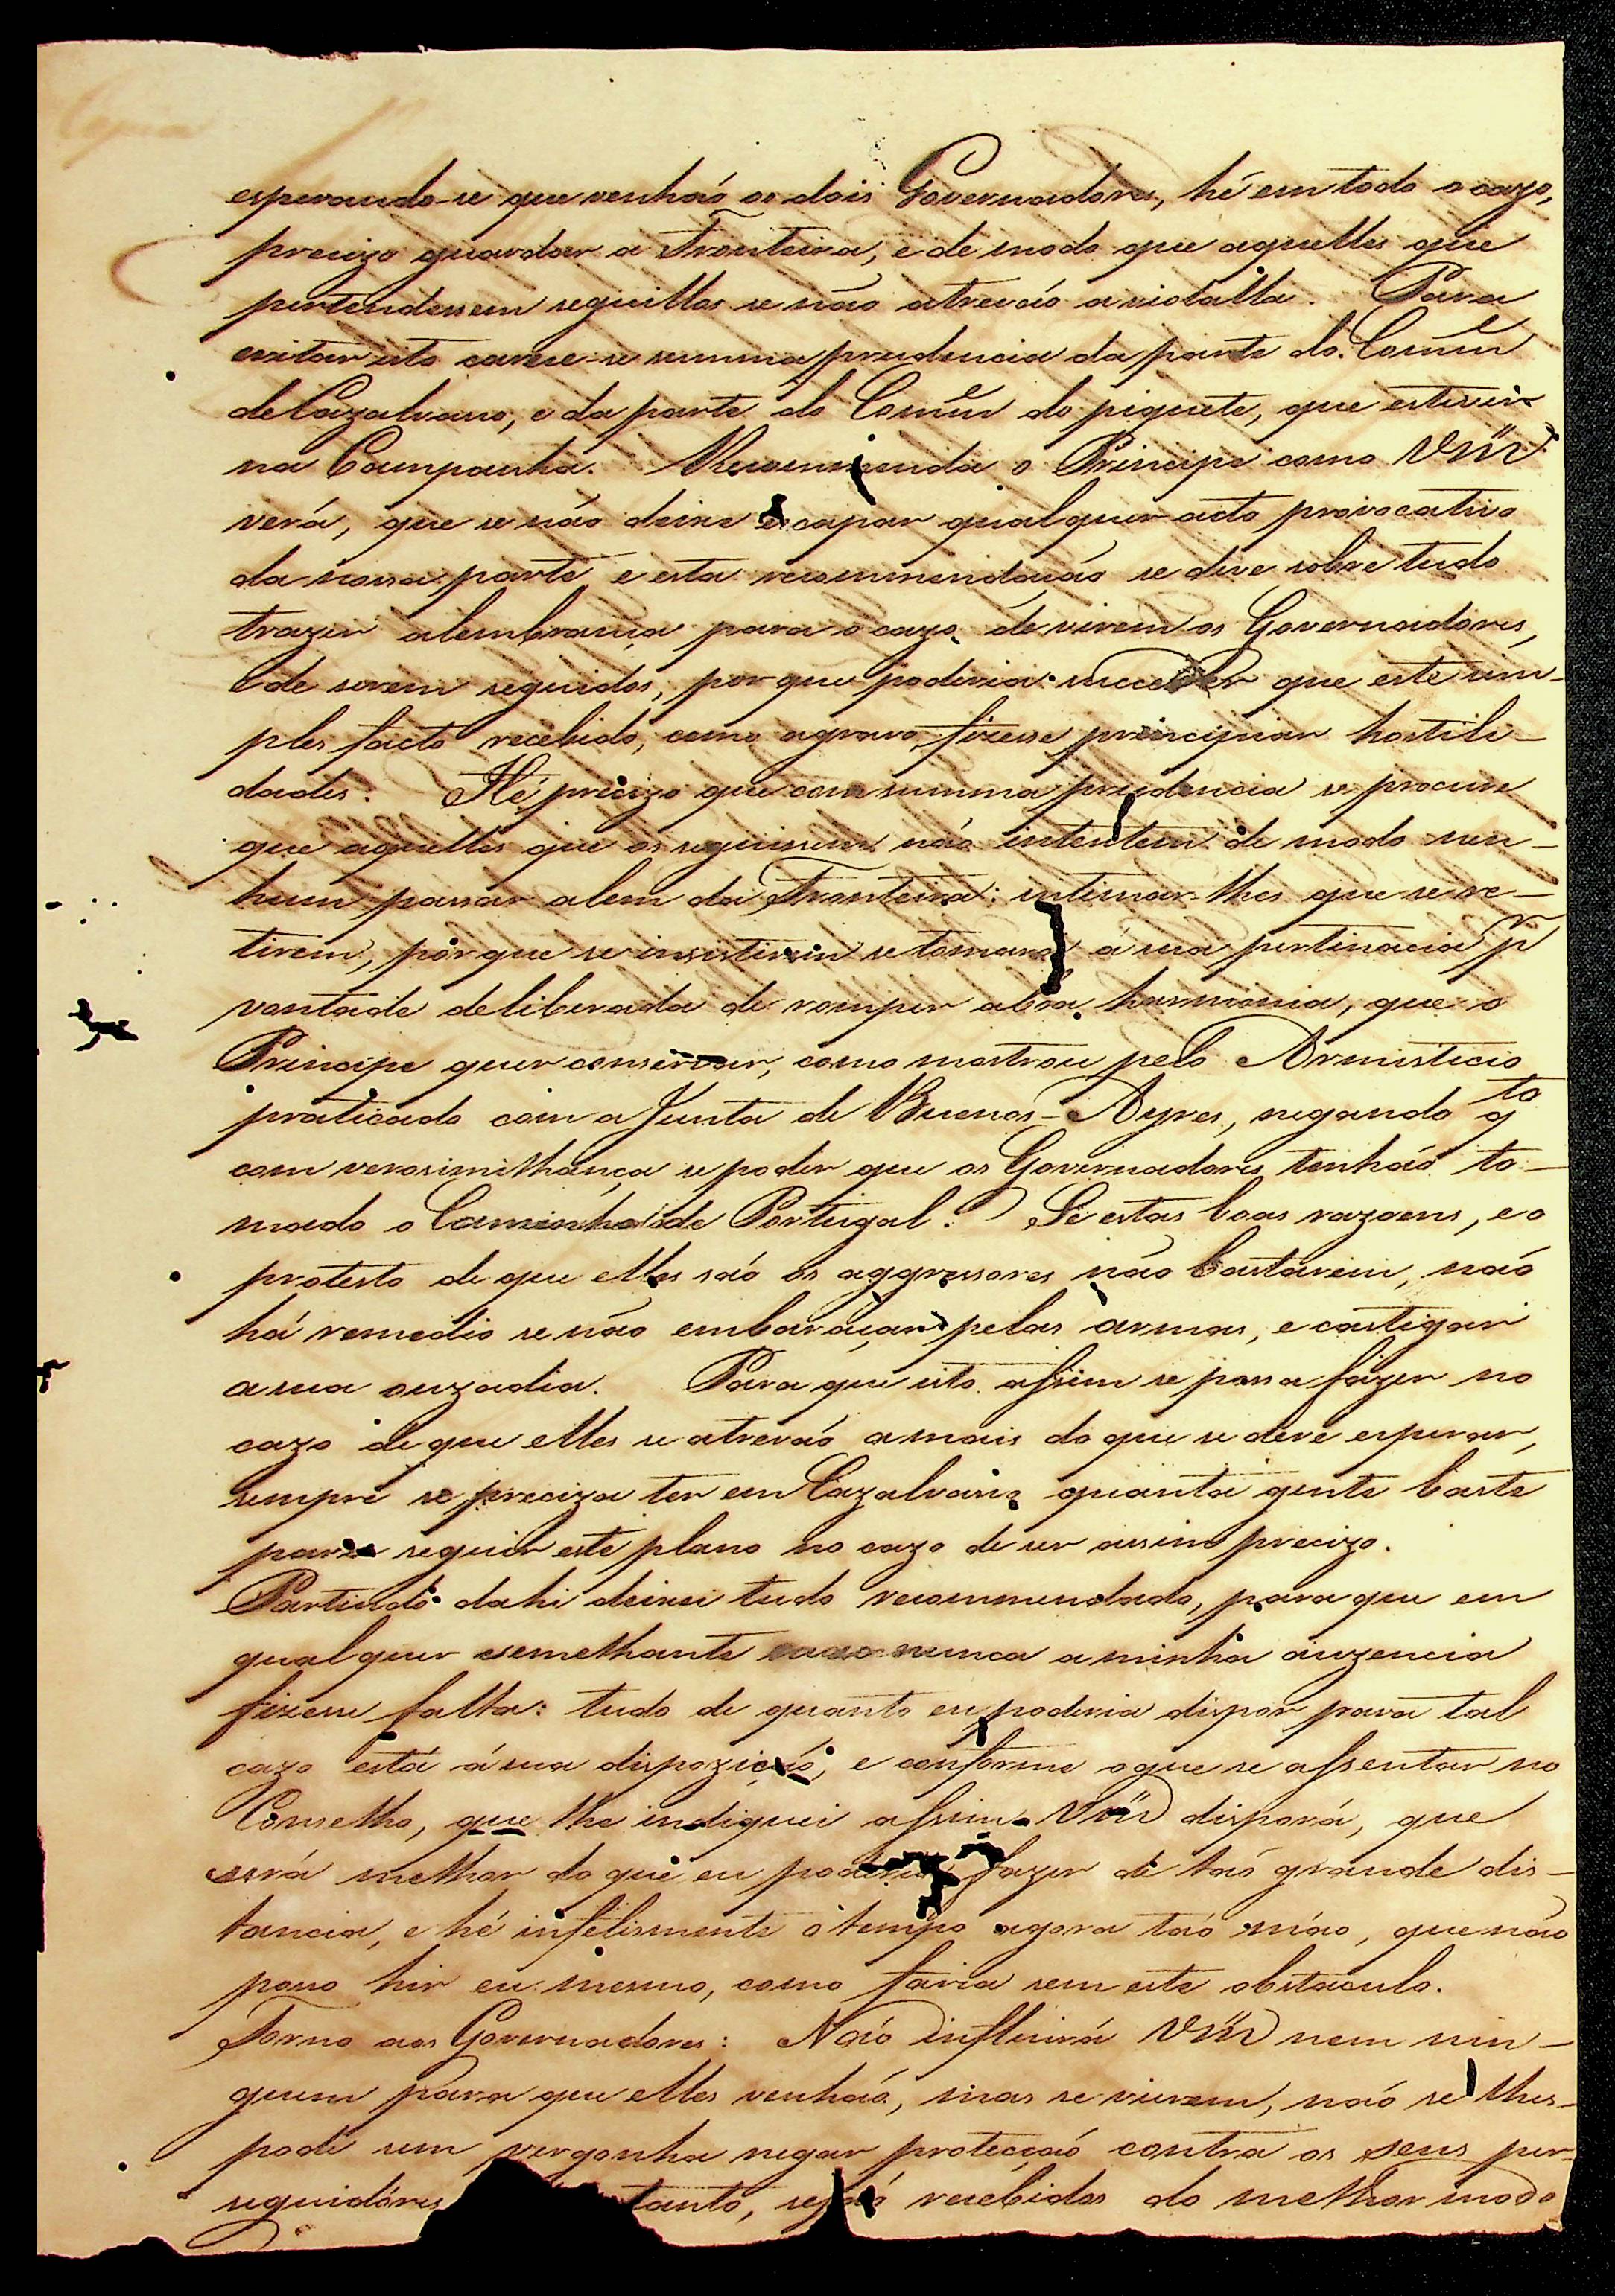 esperando-se que venhaõ os dois Governadores, hé em todo o cazo,
precizo guardar a Fronteira, e de modo que aquelles que
pertendessem seguillos se naõ atrevaõ a violalla. Para
evitar isto carece-se summa prudencia da parte do Com.e
de Cazalvasco, e da parte do Com.e do piquete, que estiver
na Campanha. Recommenda o Principe como Vm.ce
verá, que se naõ deixe escapar qualquer acto provocativo
da nossa parte, e esta recommendaçaõ se deve sobre tudo
trazer a lembrança para o cazo de virem os Governadores,
e de serem seguidos, por que poderia succeder que este sim-
ples facto recebido, como agravo, fizesse principiar hostili-
dades. Hé precizo que com summa prudencia se procure
que aquelles que os seguissem naõ intentem de modo nen-
hum passar alem da Fronteira: intimar-lhes que se re-
tirem, por que se insistirem se tomará á sua pertinacia p.r
vontade deliberada de romper a boa harmonia, que o
Principe quer conservar, como mostrou pelo Armisticio
praticado com a Junta de Buenos-Ayres, negando q.to
com verosimilhança se poder que os Governadores tenhaõ to-
mado o Caminho de Portugal. Se estas boas razoens, e o
protesto de que elles saõ os aggressores naõ bastarem, naõ
há remedio se naõ embaraçar pelas armas, e castigar
a sua ouzadia. Para que isto assim se possa fazer no
cazo de que elles se atrevaõ a mais do que se deve esperar,
sempre se preciza ter em Cazalvasco quanta gente baste
para seguir este plano no cazo de ser assim precizo.
Partindo dahi deixei tudo recommendado, para que em
qualquer semelhante cazo nunca a minha auzencia
fizesse falta: tudo de quanto eu poderia dispor para tal
cazo está á sua dispoziçaõ; e conforme o que se assentar no
Conselho, que lhe indiquei assim Vm.ce disporá, que
será melhor do que eu poderia fazer de taõ grande dis-
tancia, e hé infelismente o tempo agora taõ máo, que naõ
posso hir eu mesmo, como faria sem este obstaculo.
Torno aos Governadores: Naõ influirá Vm.ce nem nin-
guem para que elles venhaõ, mas se vierem, naõ se lhes
pode sem vergonha negar protecçaõ contra os seus per-
seguidores tanto, sejaõ recebidos do melhor modo